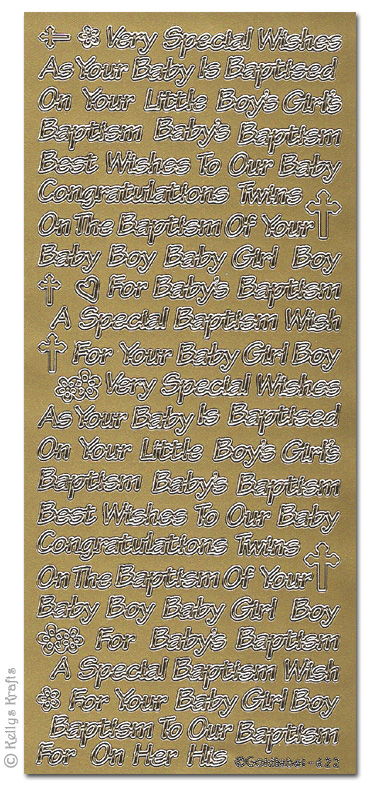 Very Special Wishes
As Your Baby Is Baptised
On Your Little Boy's Girl's
Baptism Baby's Baptism
Best Wishes To Our Baby
Congratulations Twins
On The Baptism Of Your
Baby Boy Baby Girl Boy
For Baby's Baptism
A Special Baptism Wish
For Your Baby Girl Boy
Very Special Wishes
As Your Baby Is Baptised
On Your Little Boy's Girl's
Baptism Baby's Baptism
Best Wishes To Our Baby
Congratulations Twins
On The Baptism Of Your
Baby Boy Baby Girl Boy
For Baby's Baptism
A Special Baptism Wish
For Your Baby Girl Boy
Baptism To Our Baptism
For On Her His
622
© Kellys Krafts